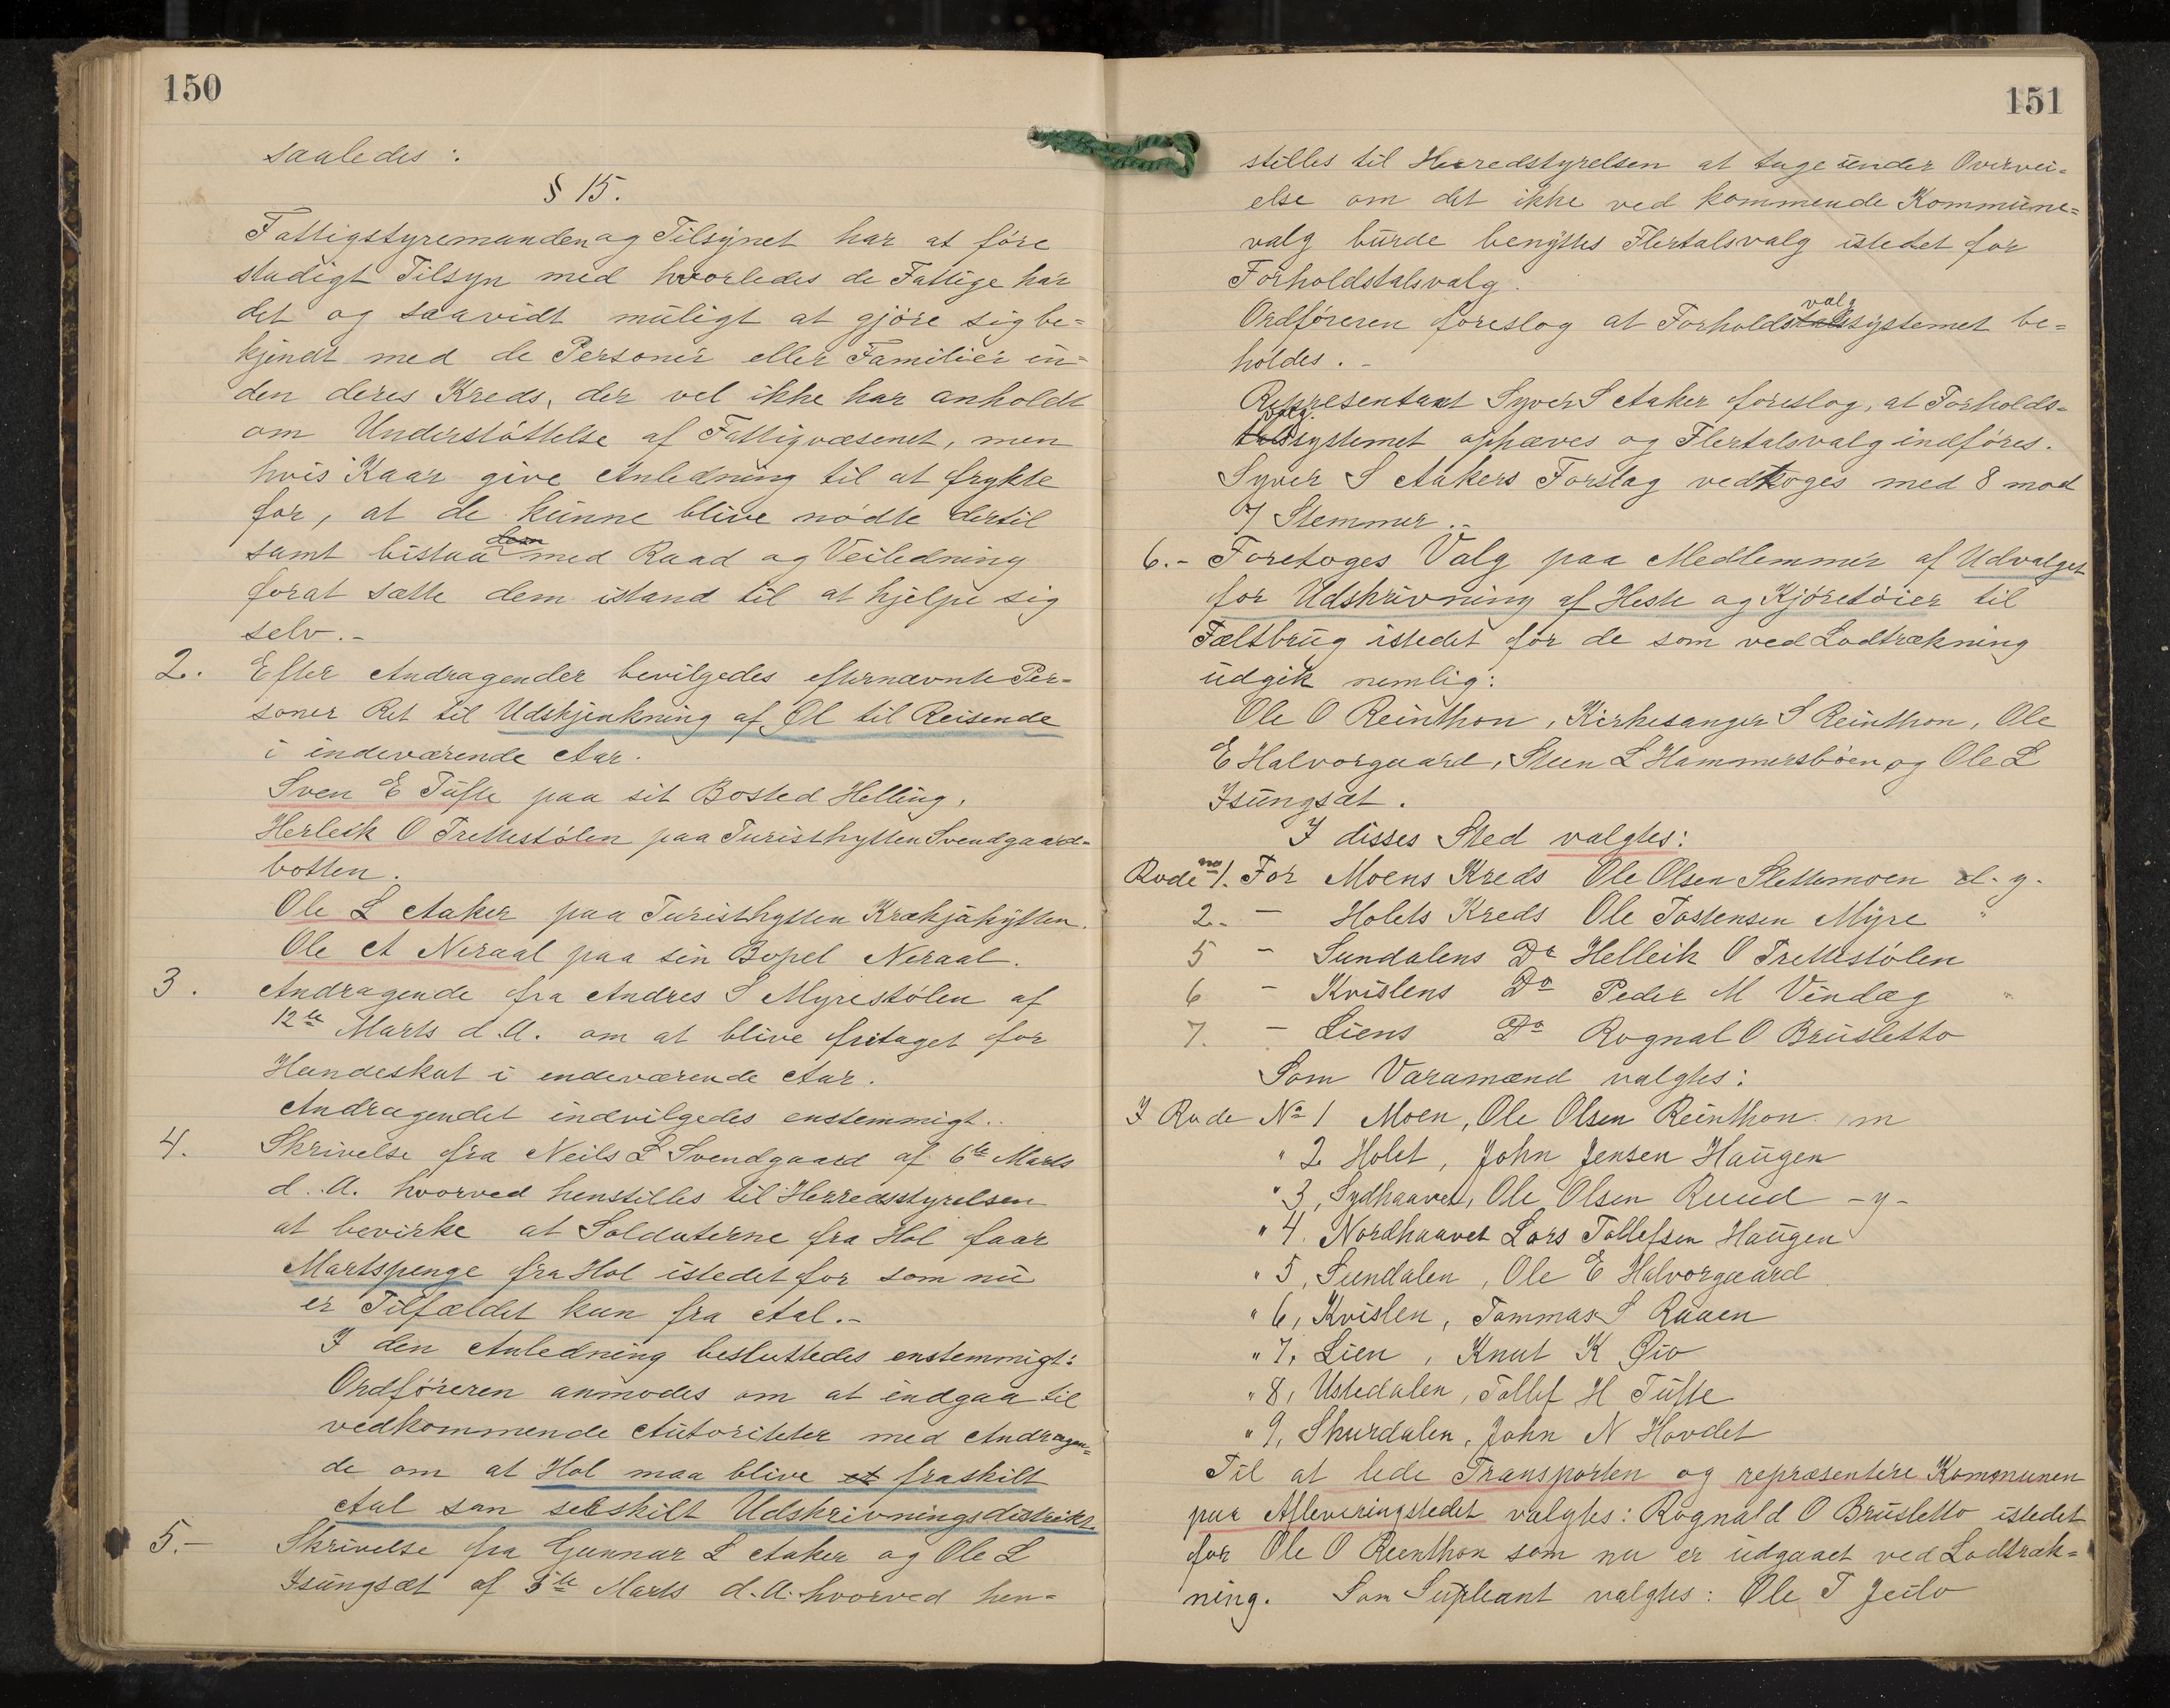 150
saaledes :
§ 15.
Fattigstyremanden og Tilsynet har at føre
stadigt Tilsyn med hvorledes de Fattige har
det og saavidt muligt at gjøre sig be=
kjendt med de Personer eller Familier in=
den deres Kreds, der vel ikke har anholdt
om Understøttelse af Fattigvæsenet, men
hvis Kaar give Anledning til at frykte
for, at de kunne blive nødte dertil
samt bistaa dem med Raad og Veiledning
forat sætte dem istand til at hjelpe sig
selv.-
2. Efter Andragender bevilgedes efternævnte Per=
soner Ret til Udskjenkning af Øl til Reisende
i indeværende Aar.
Sven E Tufte paa sit Bosted Helling.
Herleik O Trettestølen paa Turisthytten Svendgaard=
botten.
Ole L Aaker paa Turisthytten Krækjahytten.
Ole A Neraal paa sin Bopel Neraal.
3. Andragende fra Andres S Myrestølen af
12te Marts d.A. om at blive fritaget for
Hundeskat i endeværende Aar.
Andragendet indvilgedes enstemmigt..
4. Skrivelse fra Neils L Svendgaard af 6te Marts
d.A. hvorved henstilles til Herredsstyrelsen
at bevirke at Soldaterne fra Hol faar
Martspenge fra Hol istedet for som nu
er Tilfældet kun fra Aal.-
I den Anledning besluttedes enstemmigt:
Ordføreren anmodes om at indgaa til
vedkommende Autoriteter med Andragen=
de om at Hol maa blive et fraskilt
Aal som selskilt Udskrivningsdistrikt.
5.- Skrivelse fra Gunnar L Aaker og Ole L
Isungsæt af 5te Marts d.A. hvorved hen=
151
stilles til Herredstyrelsen at tage under Overvei=
else om det ikke ved kommende Kommune=
valg burde benyttes Flertalsvalg istedet for
Forholdstalsvalg.
Ordføreren foreslog at Forholdstalsvalgsystemet be=
holdes.-
Representant Syver S Aaker foreslog, at Forholds=
talsvalgsystemet ophæves og Flertalsvalg indføres.
Syver S Aakers Forslag vedtoges med 8 mod
7 Stemmer..
6.- Foretoges Valg paa Medlemmer af Udvalget
for Udskrivning af Heste og Kjøretøier til
Fæltbrug istedet for de som ved Lodtrækning
udgik nemlig:
Ole O Reinthon, Kirkesanger S Reinthon, Ole
E Halvorgaard, Steen L Hammersbøen og Ole L
Isungsæt.
I disses Sted valgtes:
Rode no 1. For Moens Kreds Ole Olsen Slettemoen d. y.
2. - Holets Kreds Ole Tostensen Myre "
5 - Sundalens Do Helleik O Trettestølen
6 - Kvislens Do Peder M Vindæg "
7. - Liens Do Rognal O Brusletto
Som Varamænd valgtes:
I Rode No 1 Moen, Ole Olsen Reinthon m
" 2 Holet, John Jensen Haugen
" 3, Sydhaavet, Ole Olsen Ruud - y -
" 4. Nordhaavet Lars Tollefsen Haugen
" 5, Sundalen, Ole E Halvorgaard
" 6, Kvislen, Tommas S Raaen
" 7, Lien, Knut K Øio
" 8, Ustedalen, Tollef H Tufte
" 9, Skurdalen, John N Hovdet
Til at lede Transporten og repræsentere Kommunen
paa Afleveringstedet valgtes: Rognald O Brusletto istedet
for Ole O Reinthon som nu er udgaaet ved Lodtræk=
ning. Som Supleant valgtes: Ole T Jeilo